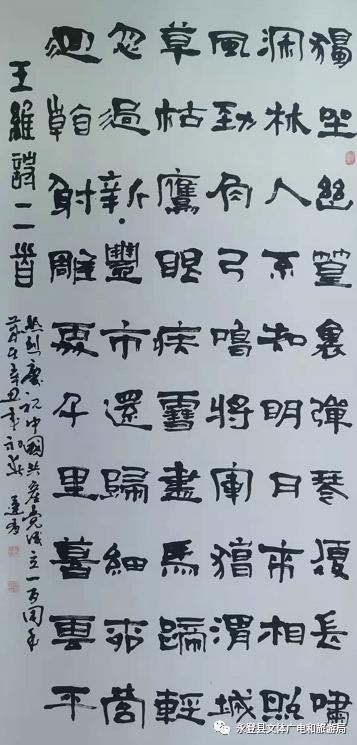 獨坐幽篁裏彈琴復長嘯
深林人不知明月來相照
風勁角弓鳴將軍獵渭城
草枯鷹眼疾雪盡馬蹄輕
忽過新豐市還歸細柳營
迴看射雕處千里暮雲平
王維詩二首
熱烈慶祝中國共產黨成立一百周年
歲在辛丑年
永登县文体广电和旅游局